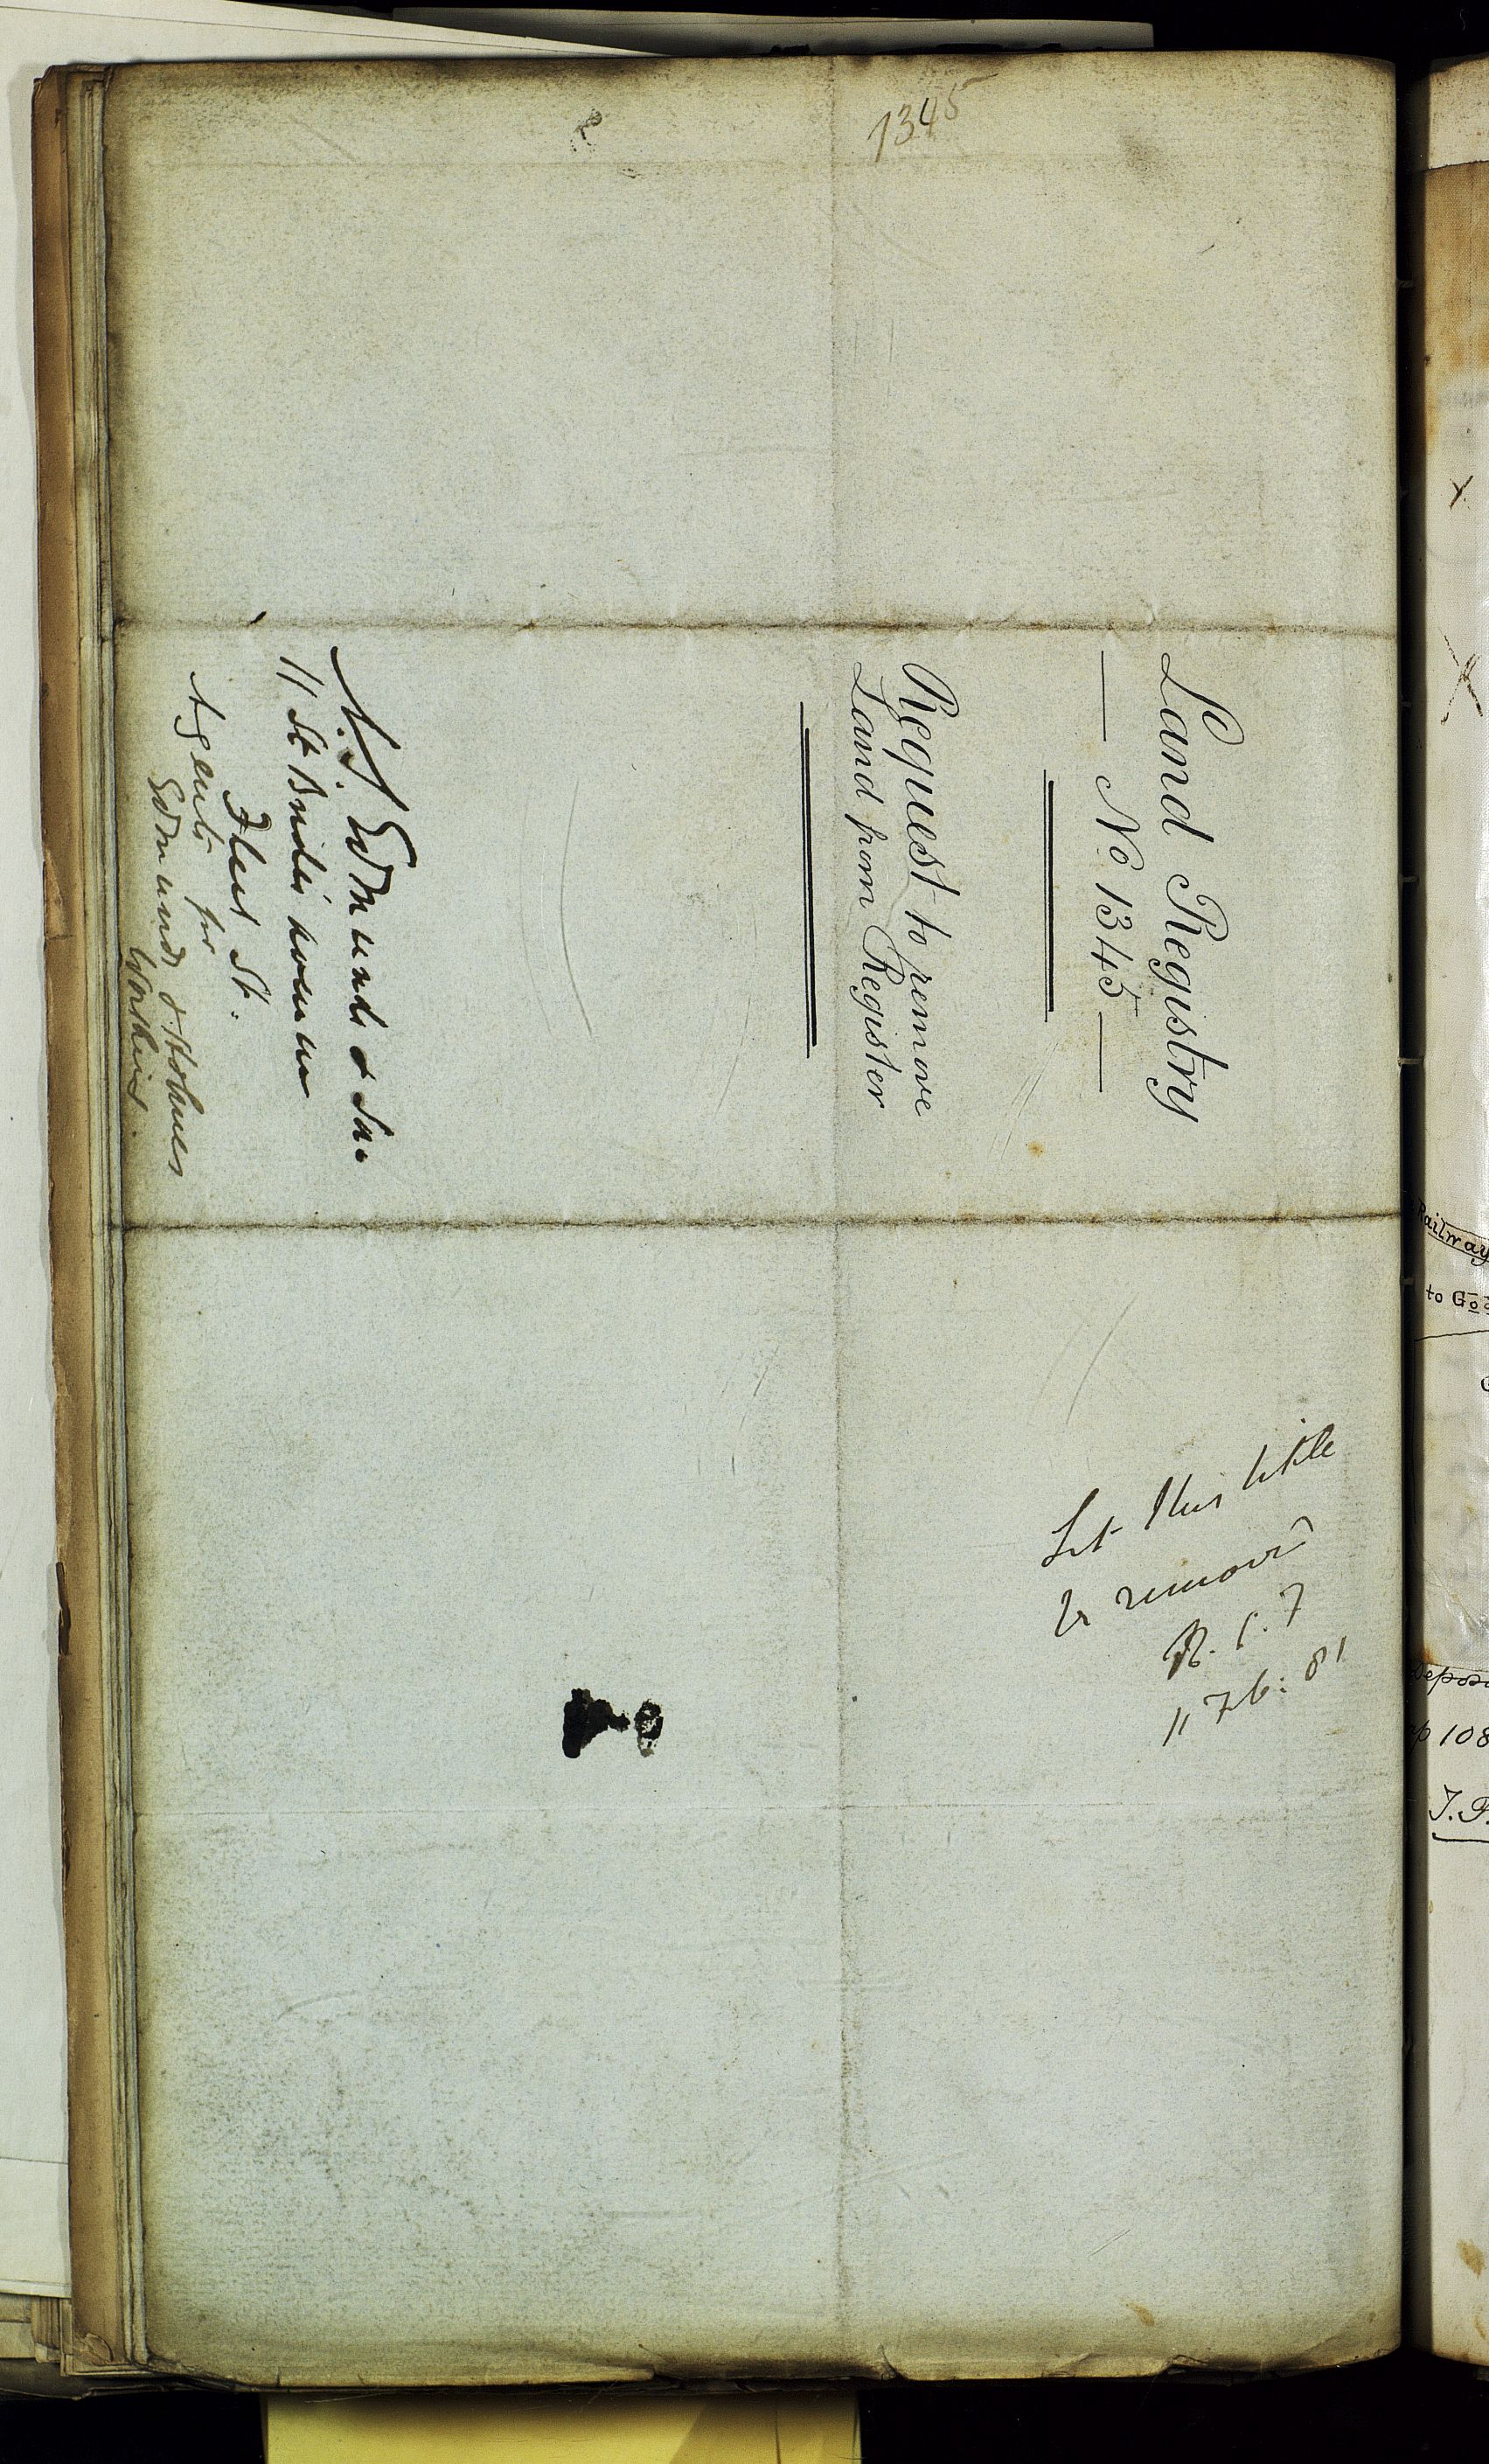 1345
Land Registry
— No 1345 —
Request to remove
Land from Register
Edmunds & Son
11 St Brides Avenue
Fleet St.
Agents for
Edmunds & Holmes
Worthing
Let this title
be removed
11 Feb: 81
Railway
to Go
Depos
108